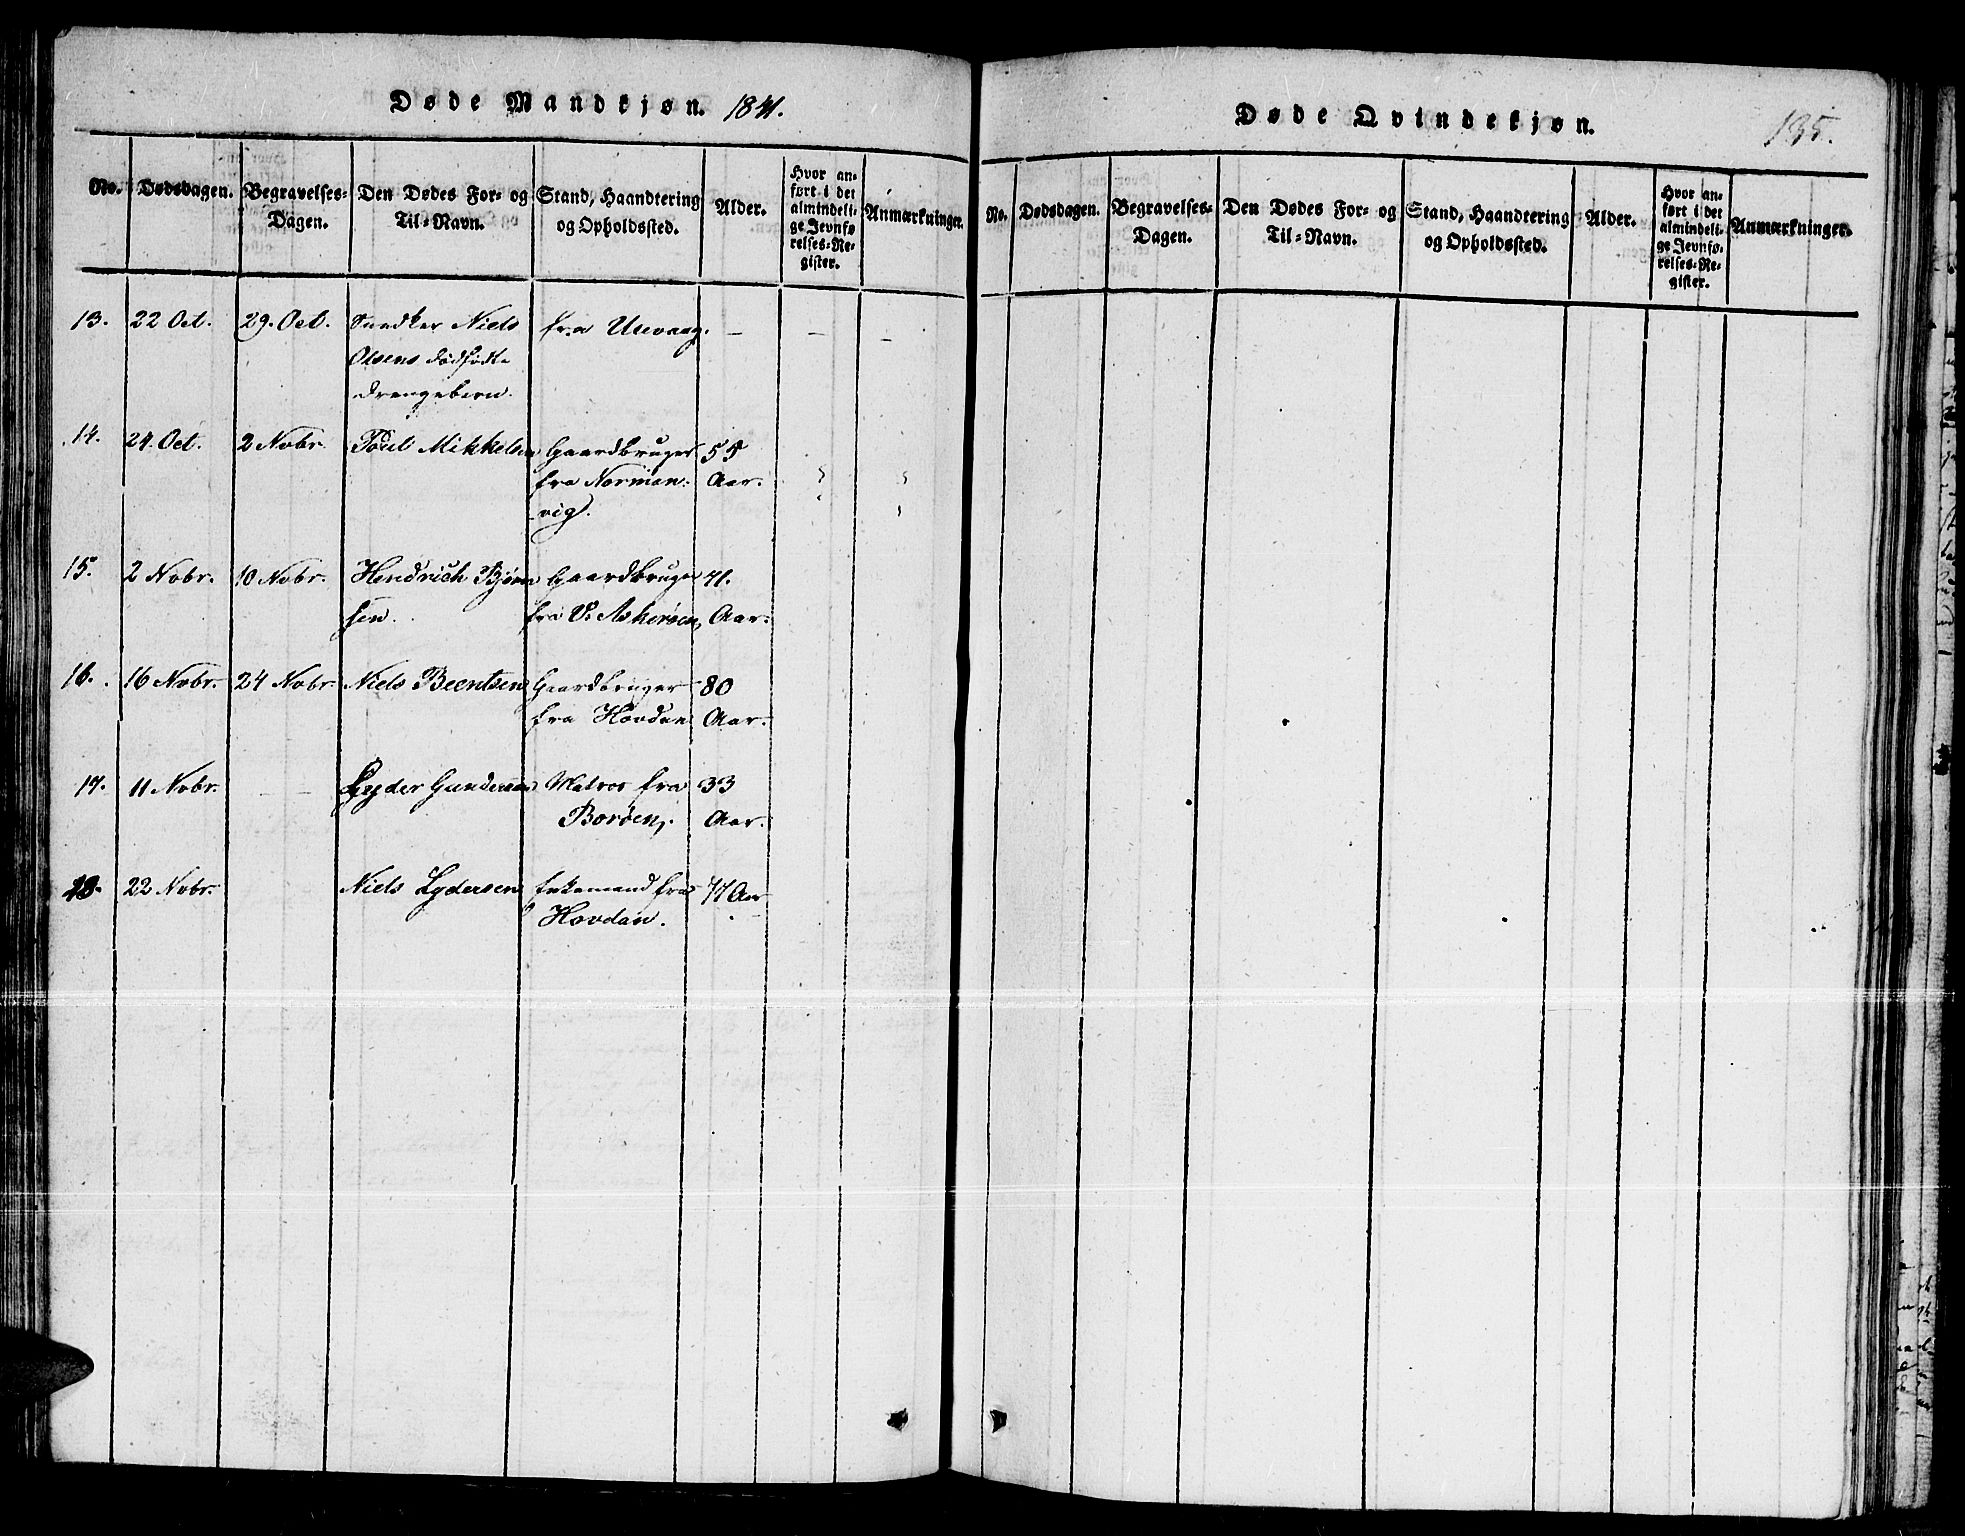 Døde Mandkjøn. 1841.
No. Dødsdagen. Begravelses-Dagen. Den Dødes For- og Til-Navn. Stand, Haandtering og Opholdssted. Alder. Hvor anført i det almindelige Jevnførelses-Register. Anmærkninger.
13. 22 Oct. 29. Oct. Snedker Niels fra Uevaag. - - -
Olsens dødfødte
Drengebarn.
14. 24. Oct. 2 Nobr. Poul Mikkelsen Gaardbruger 55
fra Norman- Aar.
vig.
15. 2 Nobr. 10 Nobr. Hendrich Bjørn Gaardbruger 71.
sen. fra V. Askerøen, Aar.
16. 16 Nobr. 24 Nobr. Niels Beentsen Gaardbruger 80
fra Hovdan Aar.
17. 11 Nobr. - - Lyder Gundersen Matros fra 33
Borøen, Aar.
18. 22 Nobr. Niels Lydersen Enkemand fra 77 Aar
Hovdan.
Døde Qvindekjøn.
135.
No. Dødsdagen. Begravelses-Dagen. Den Dødes For- og Til-Navn. Stand, Haandtering og Opholdssted. Alder. Hvor anført i det almindelige Jevnførelses-Register. Anmærkninger.